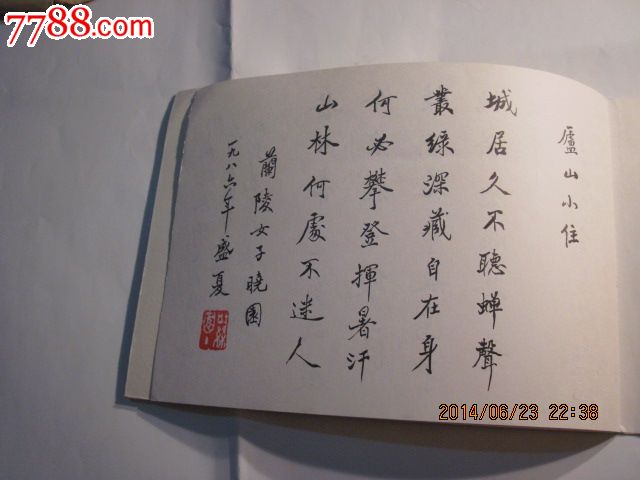 7788.com
廬山小住
城居久不聽蟬聲
叢綠深藏自在身
何必攀登揮暑汗
山林何處不迷人
蘭陵女子曉園
一九八六年盛夏
2014/06/23 22:38